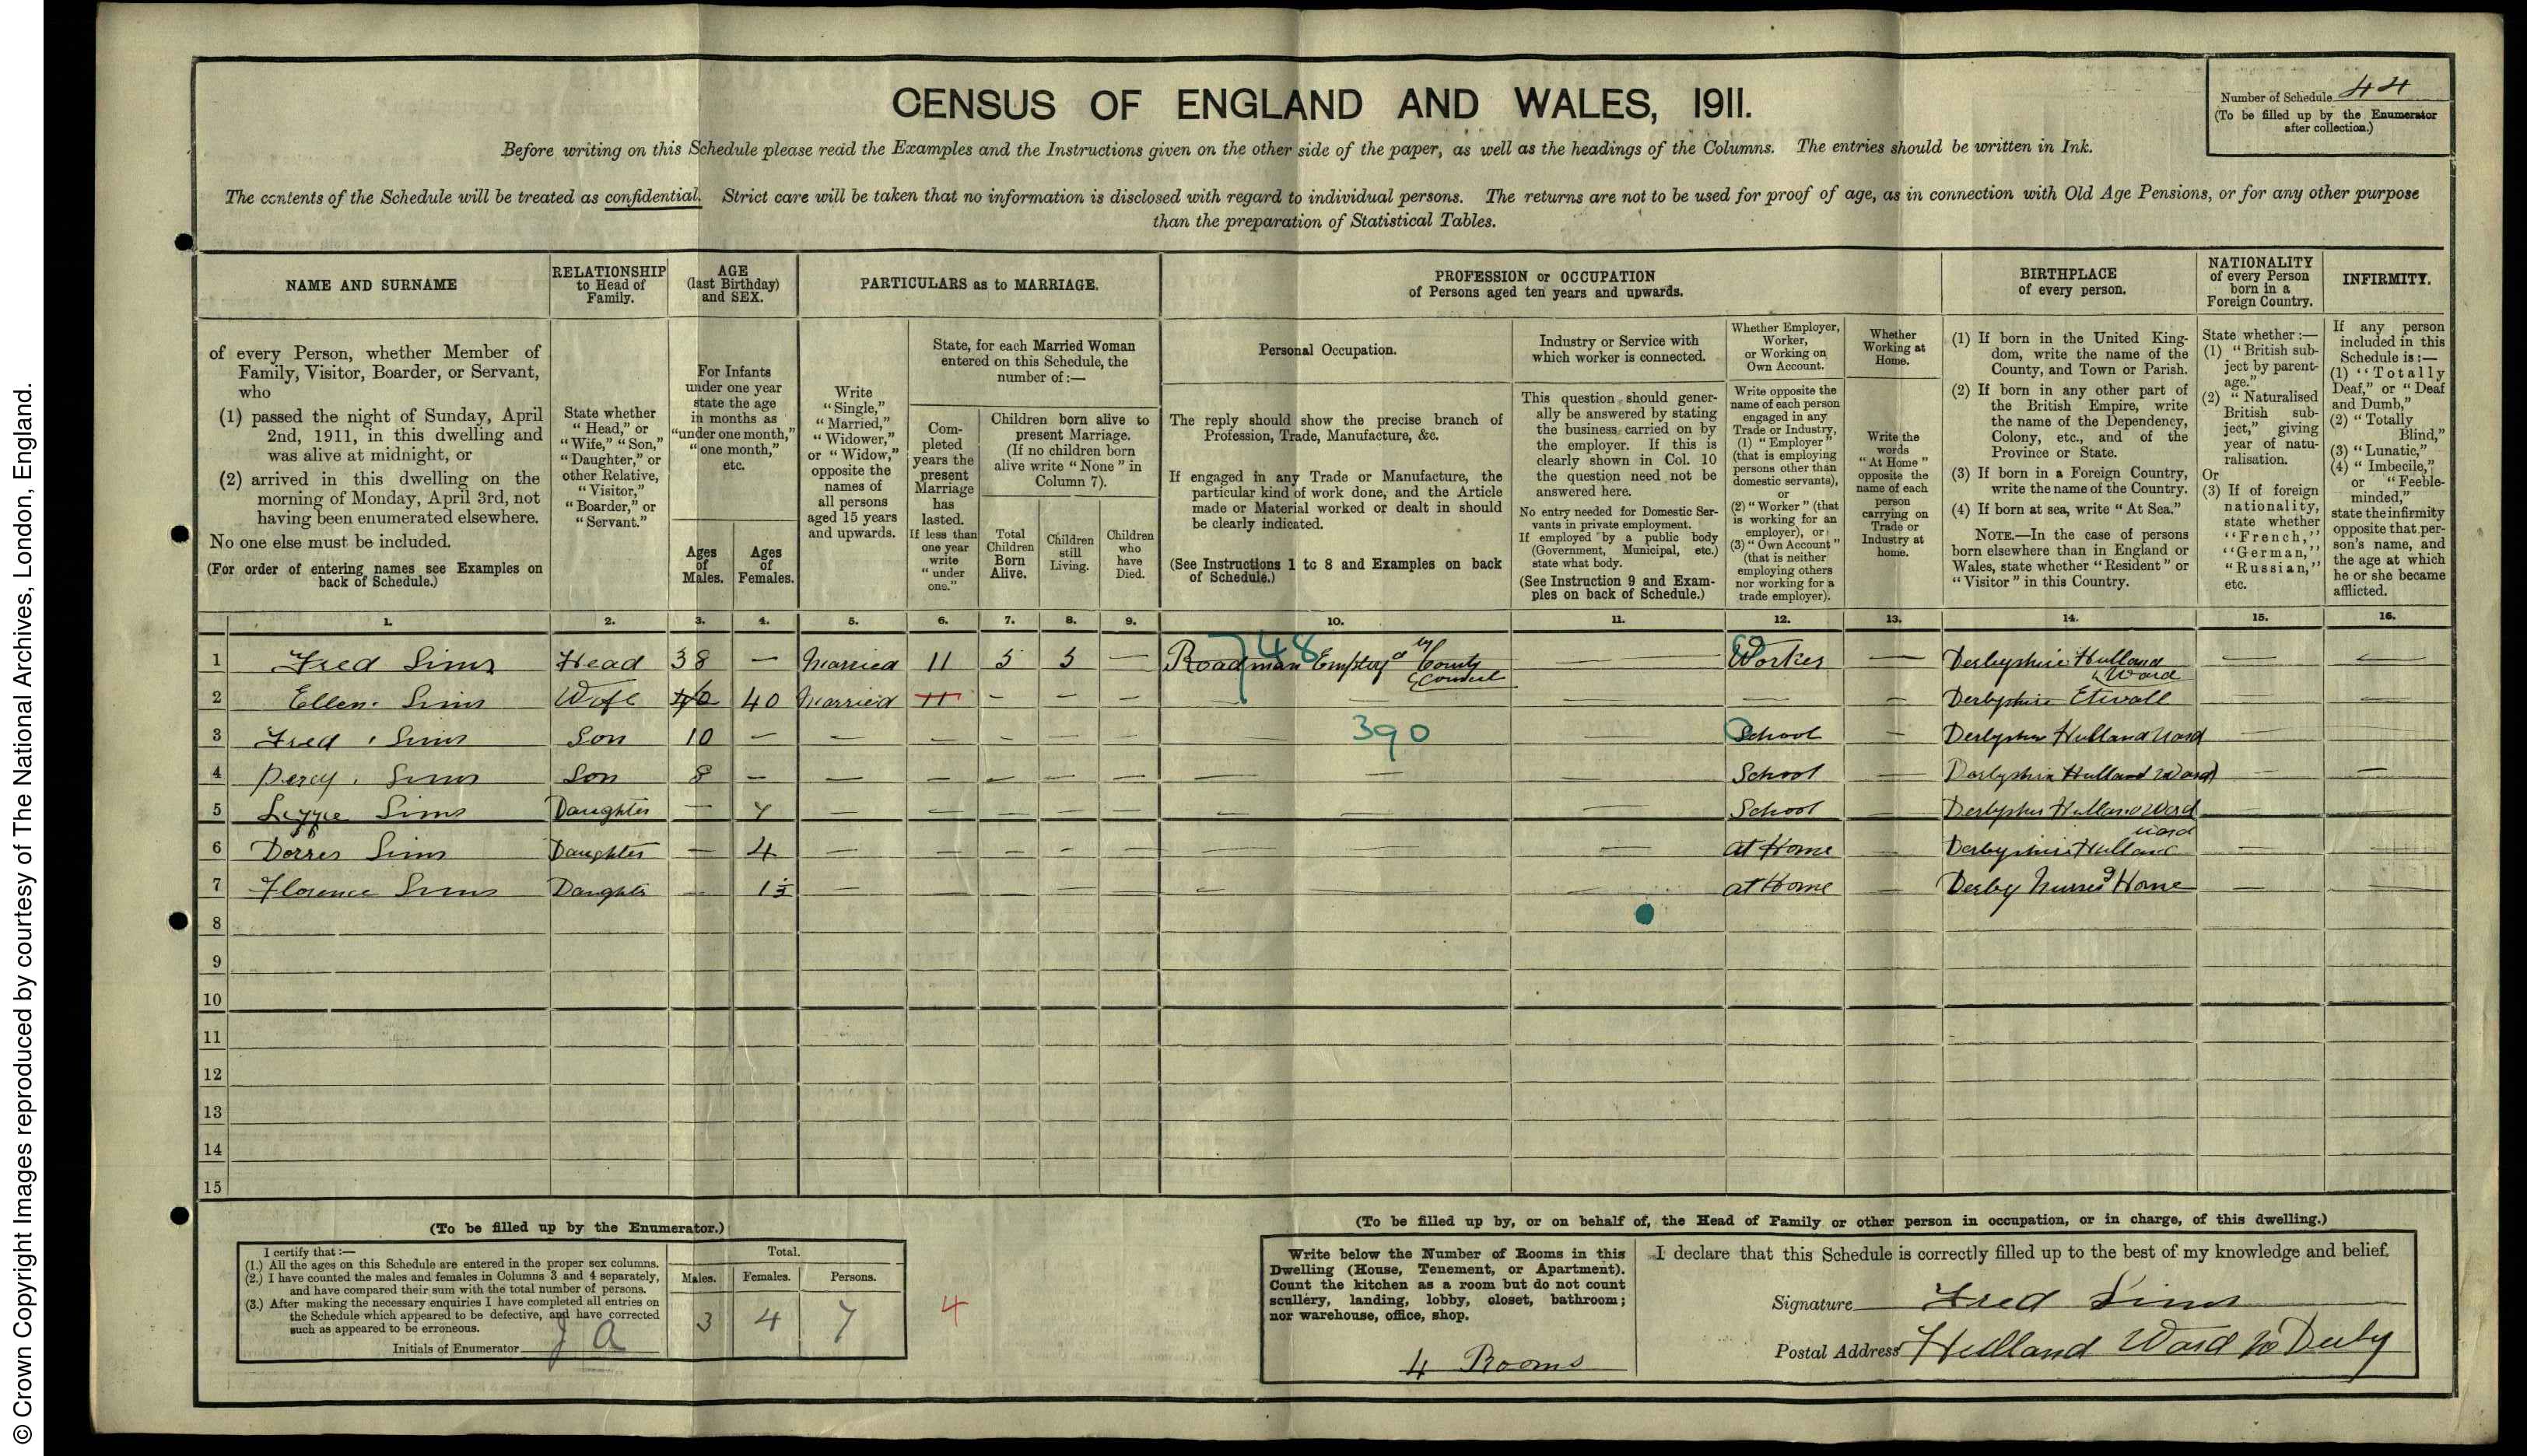 CENSUS OF ENGLAND AND WALES, 1911.
Number of Schedule 44
(To be filled up by the Enumerator
after collection.)
Before writing on this Schedule please read the Examples and the Instructions given on the other side of the paper, as well as the headings of the Columns. The entries should be written in Ink.
The contents of the Schedule will be treated as confidential. Strict care will be taken that no information is disclosed with regard to individual persons. The returns are not to be used for proof of age, as in connection with Old Age Pensions, or for any other purpose
than the preparation of Statistical Tables.
NAME AND SURNAME
of every Person, whether Member of
Family, Visitor, Boarder, or Servant,
who
(1) passed the night of Sunday, April
2nd, 1911, in this dwelling and
was alive at midnight, or
(2) arrived in this dwelling on the
morning of Monday, April 3rd, not
having been enumerated elsewhere.
No one else must be included.
(For order of entering names see Examples on
back of Schedule.)
RELATIONSHIP
to Head of
Family.
State whether
"Head," or
"Wife," "Son,"
"Daughter," or
other Relative,
"Visitor,"
"Boarder," or
"Servant."
AGE
(last Birthday)
and SEX.
For Infants
under one year
state the age
in months as
"under one month,"
"one month,"
etc.
Ages
of
Males.
Ages
of
Females.
PARTICULARS as to MARRIAGE.
Write
"Single,"
"Married,"
"Widower,"
or "Widow,"
opposite the
names of
all persons
aged 15 years
and upwards.
State, for each Married Woman
entered on this Schedule, the
number of :—
Com-
pleted
years the
present
Marriage
has
lasted.
If less than
one year
write
"under
one."
Children born alive to
present Marriage.
(If no children born
alive write "None" in
Column 7).
Total
Children
Born
Alive.
Children
still
Living.
Children
who
have
Died.
PROFESSION or OCCUPATION
of Persons aged ten years and upwards.
Personal Occupation.
The reply should show the precise branch of
Profession, Trade, Manufacture, &c.
If engaged in any Trade or Manufacture, the
particular kind of work done, and the Article
made or Material worked or dealt in should
be clearly indicated.
(See Instructions 1 to 8 and Examples on back
of Schedule.)
Industry or Service with
which worker is connected.
This question should gener-
ally be answered by stating
the business carried on by
the employer. If this is
clearly shown in Col. 10
the question need not be
answered here.
No entry needed for Domestic Ser-
vants in private employment.
If employed by a public body
(Government, Municipal, etc.)
state what body.
(See Instruction 9 and Exam-
ples on back of Schedule.)
Whether Employer,
Worker,
or Working on
Own Account.
Write opposite the
name of each person
engaged in any
Trade or Industry,
(1) "Employer"
(that is employing
persons other than
domestic servants),
or
(2) "Worker" (that
is working for an
employer), or
(3) "Own Account"
(that is neither
employing others
nor working for a
trade employer).
Whether
Working at
Home.
Write the
words
"At Home"
opposite the
name of each
person
carrying on
Trade or
Industry at
home.
BIRTHPLACE
of every person.
(1) If born in the United King-
dom, write the name of the
County, and Town or Parish.
(2) If born in any other part of
the British Empire, write
the name of the Dependency,
Colony, etc., and of the
Province or State.
(3) If born in a Foreign Country,
write the name of the Country.
(4) If born at sea, write "At Sea."
NOTE.—In the case of persons
born elsewhere than in England or
Wales, state whether "Resident" or
"Visitor" in this Country.
NATIONALITY
of every Person
born in a
Foreign Country.
State whether :—
(1) "British sub-
ject by parent-
age."
(2) "Naturalised
British sub-
ject," giving
year of natu-
ralisation.
Or
(3) If of foreign
nationality,
state whether
"French,"
"German,"
"Russian,"
etc.
INFIRMITY.
If any person
included in this
Schedule is :—
(1) "Totally
Deaf," or "Deaf
and Dumb,"
(2) "Totally
Blind,"
(3) "Lunatic,"
(4) "Imbecile,"
or "Feeble-
minded,"
state the infirmity
opposite that per-
son's name, and
the age at which
he or she became
afflicted.
1. 2. 3. 4. 5. 6. 7. 8. 9. 10. 11. 12. 13. 14. 15. 16.
1 Fred Sims Head 38 — Married 11 5 5 — Roadman Employd by County Council — Worker — Derbyshire Hulland Ward — —
748
2 Ellen Sims Wife 40 40 Married 11 — — — — — — Derbyshire Etwall — —
3 Fred Sims Son 10 — — — — — — 390 — School — Derbyshire Hulland Ward —
4 Percy Sims Son 8 — — — — — — — — School — Derbyshire Hulland Ward — —
5 Lizzie Sims Daughter — 7 — — — — — — — — School — Derbyshire Hulland Ward — —
6 Dorres Sims Daughter — 4 — — — — — — — — at Home — Derbyshire Hulland Ward — —
7 Florence Sims Daughter — 1½ — — — — — — — at Home — Derby Nurses Home — —
8
9
10
11
12
13
14
15
(To be filled up by the Enumerator.)
I certify that :—
(1.) All the ages on this Schedule are entered in the proper sex columns.
(2.) I have counted the males and females in Columns 3 and 4 separately,
and have compared their sum with the total number of persons.
(3.) After making the necessary enquiries I have completed all entries on
the Schedule which appeared to be defective, and have corrected
such as appeared to be erroneous.
Initials of Enumerator J a
Total.
Males. Females. Persons.
3 4 7
4
(To be filled up by, or on behalf of, the Head of Family or other person in occupation, or in charge, of this dwelling.)
Write below the Number of Rooms in this
Dwelling (House, Tenement, or Apartment).
Count the kitchen as a room but do not count
scullery, landing, lobby, closet, bathroom;
nor warehouse, office, shop.
4 Rooms
I declare that this Schedule is correctly filled up to the best of my knowledge and belief.
Signature Fred Sims
Postal Address Hulland Ward Derby
© Crown Copyright Images reproduced by courtesy of The National Archives, London, England.